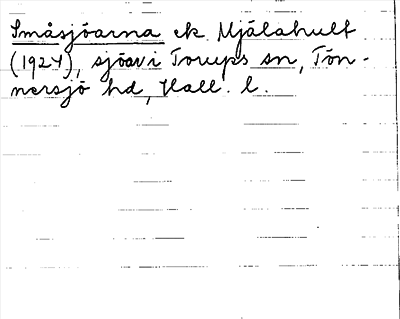 Småsjöarna ek. Mjälahult
(1924), sjöar i Torups sn, Tön-
nersjö hd, Hall. l.